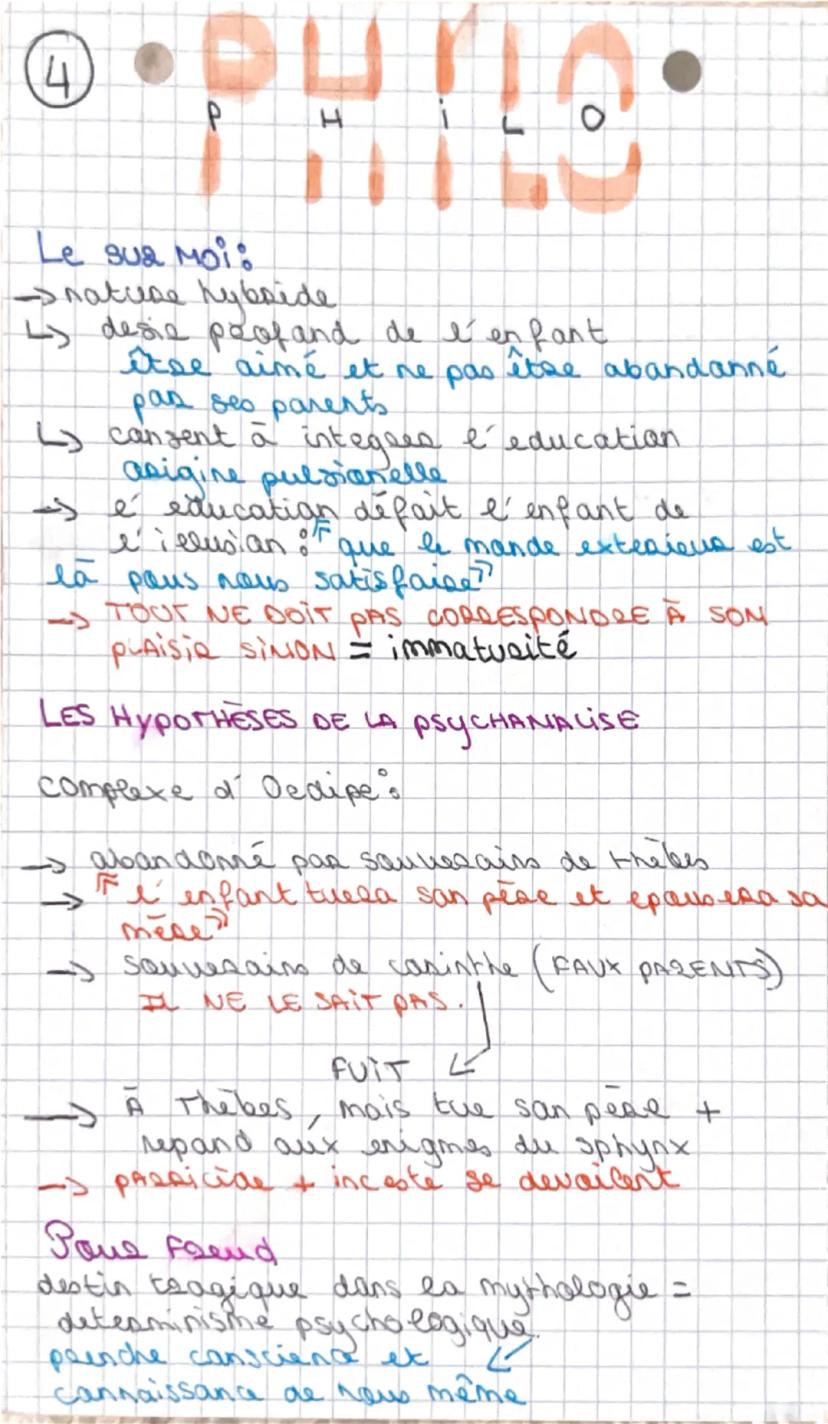 4
PHILO
P H i L O
Le sur Moi:
→ nature hybride
↳ desir profond de l'enfant
être aimé et ne pas être abandonné
par ses parents
↳ consent à integrer l'education
origine pulsionelle
→ l'education défait l'enfant de
l'illusion : "que le monde exterieur est
là pour nous satisfaire"
→ TOUT NE DOIT PAS CORRESPONDRE À SON
PLAISIR SINON = immaturité
LES HYPOTHÈSES DE LA PSYCHANALISE
complexe d'Oedipe:
→ abandonné par souverains de thèbes
→ "l'enfant tuera son père et epousera sa
mère"
→ souverains de corinthe (FAUX PARENTS)
IL NE LE SAIT PAS.
FUIT ↙
→ À Thèbes, mais tue son père +
repond aux enigmes du sphynx
→ parricide + inceste se devoilent
Pour Freud
destin tragique dans la mythologie =
determinisme psychologique
prendre conscience et ↙
connaissance de nous même